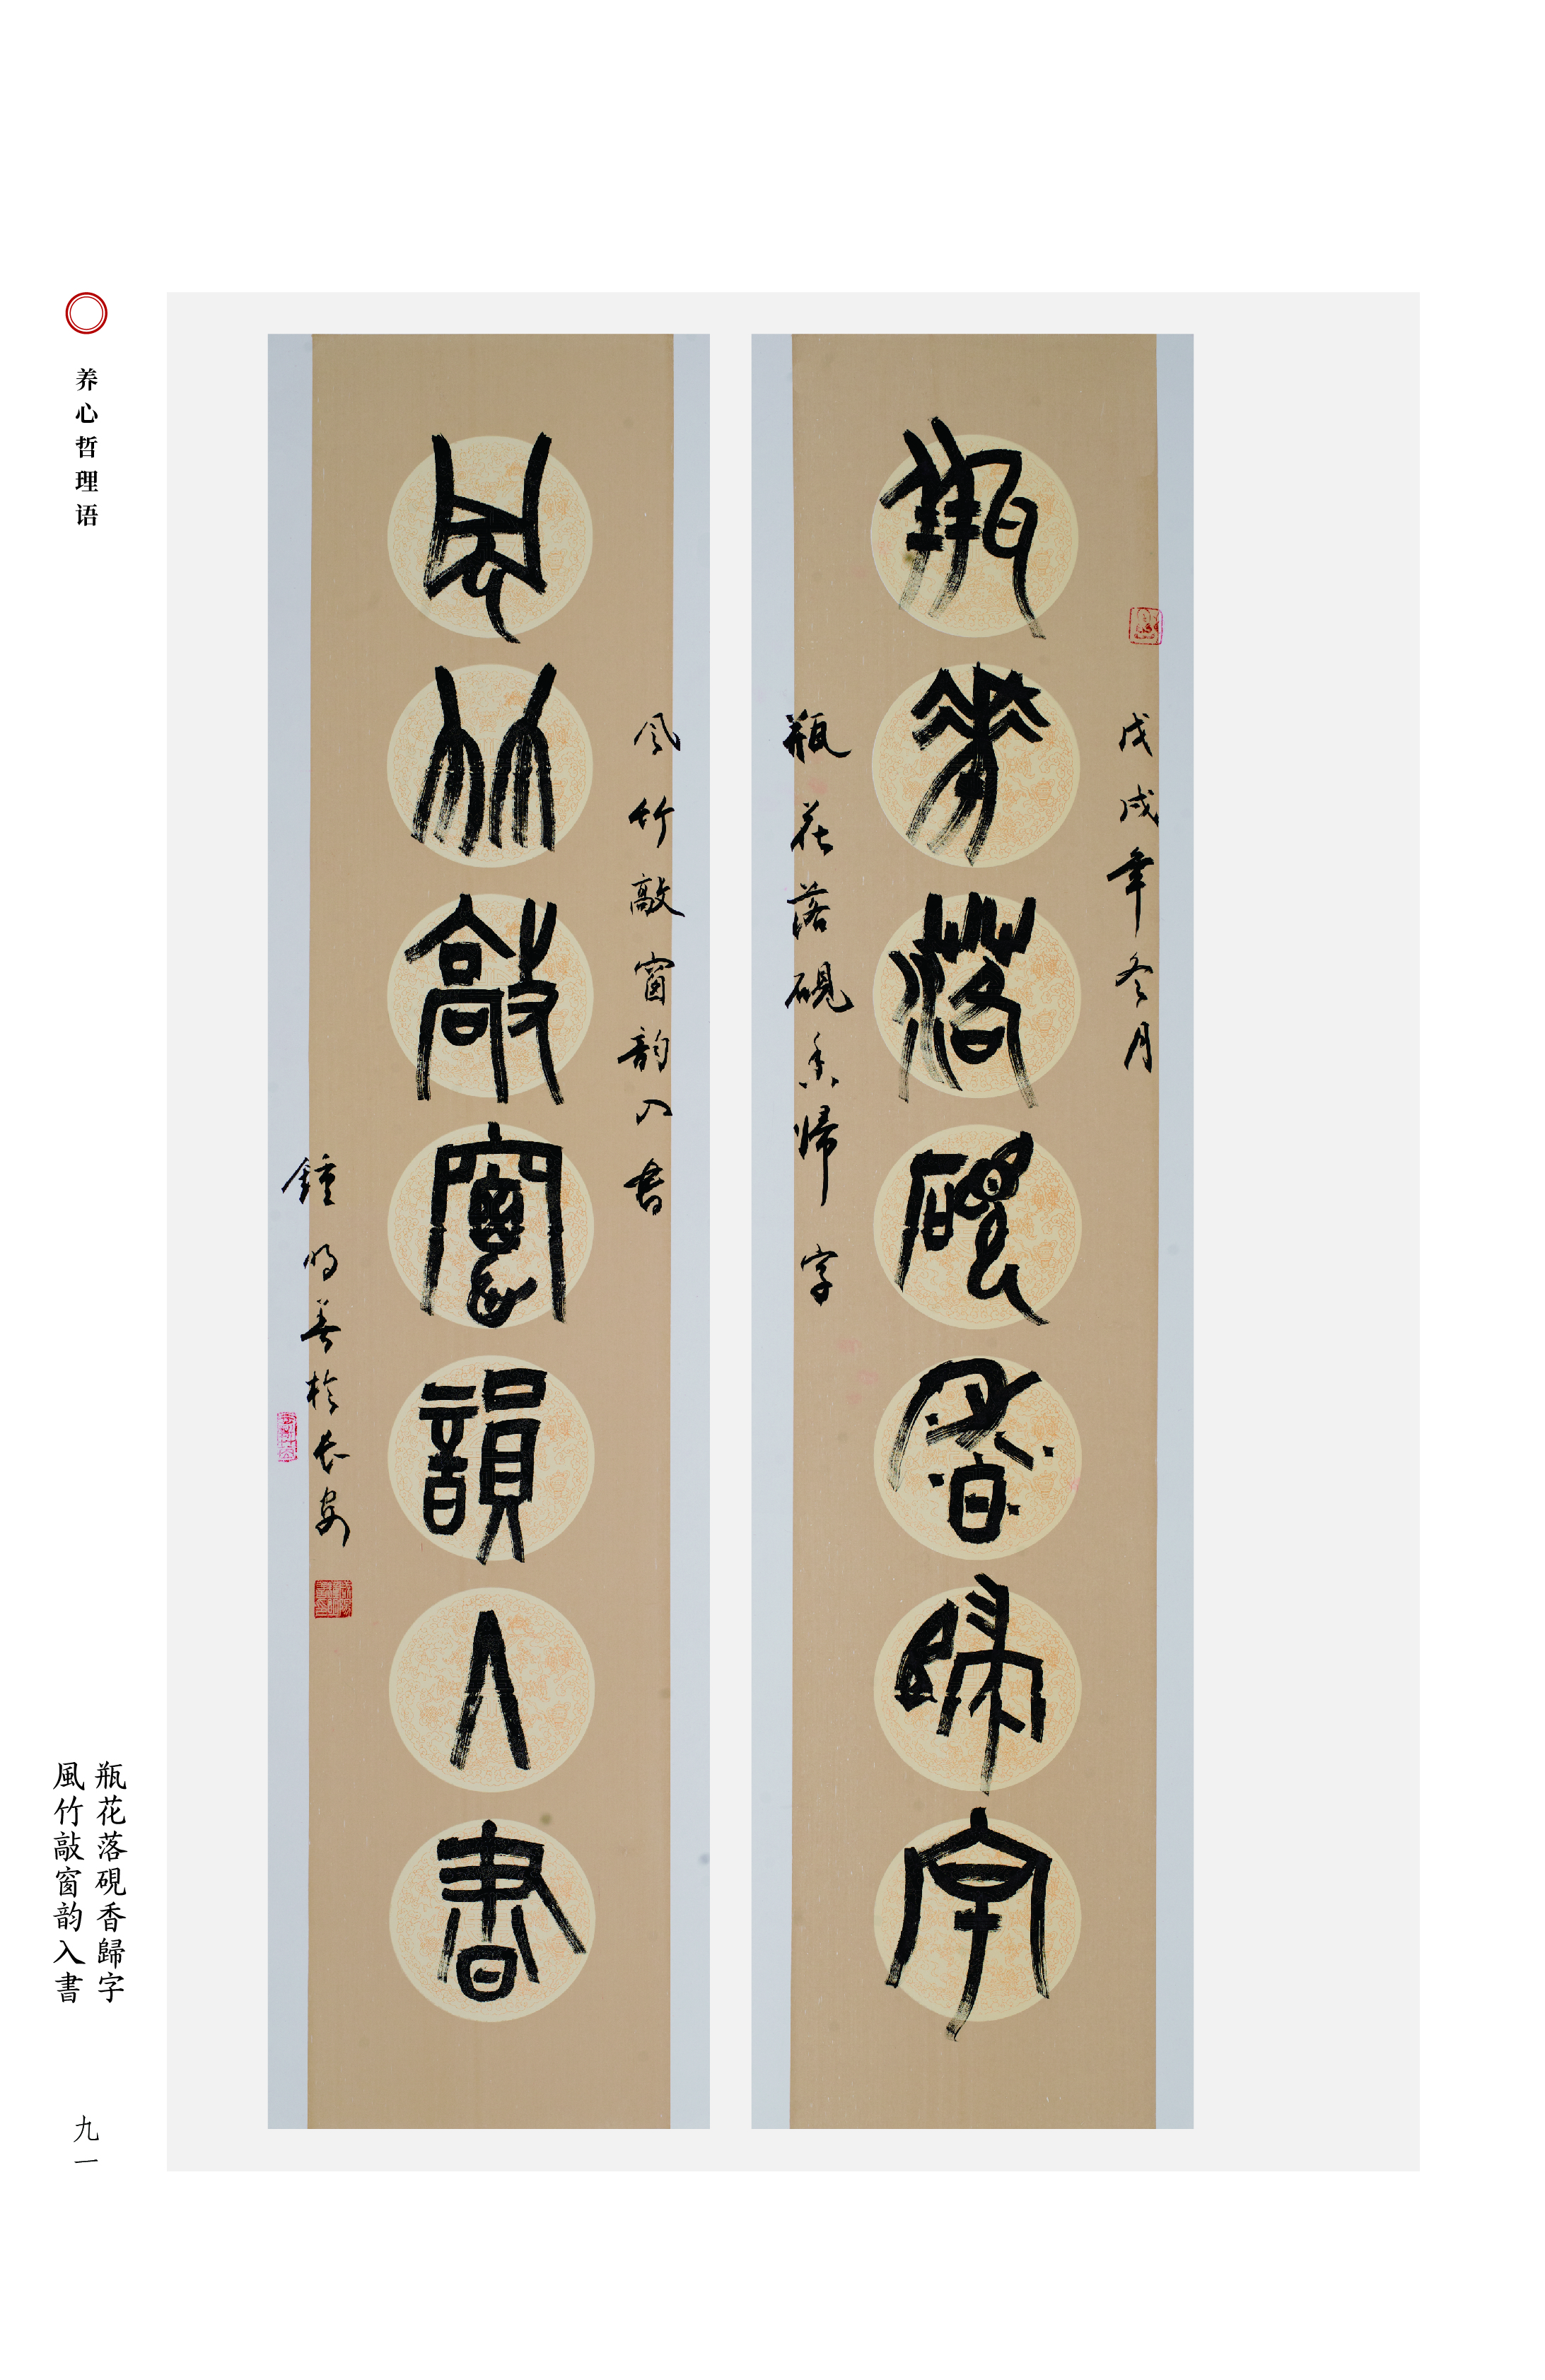 瓶花落硯香歸字
戊戌年冬月
瓶花落硯香歸字
風竹敲窗韻入書
风竹敲窗韵入書
鍾明善於長安
养心哲理语
瓶花落硯香歸字
風竹敲窗韵入書
九一